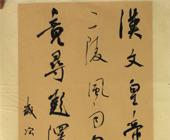 漢文皇帝
二陵風雨自
竟尋彭澤
歲次